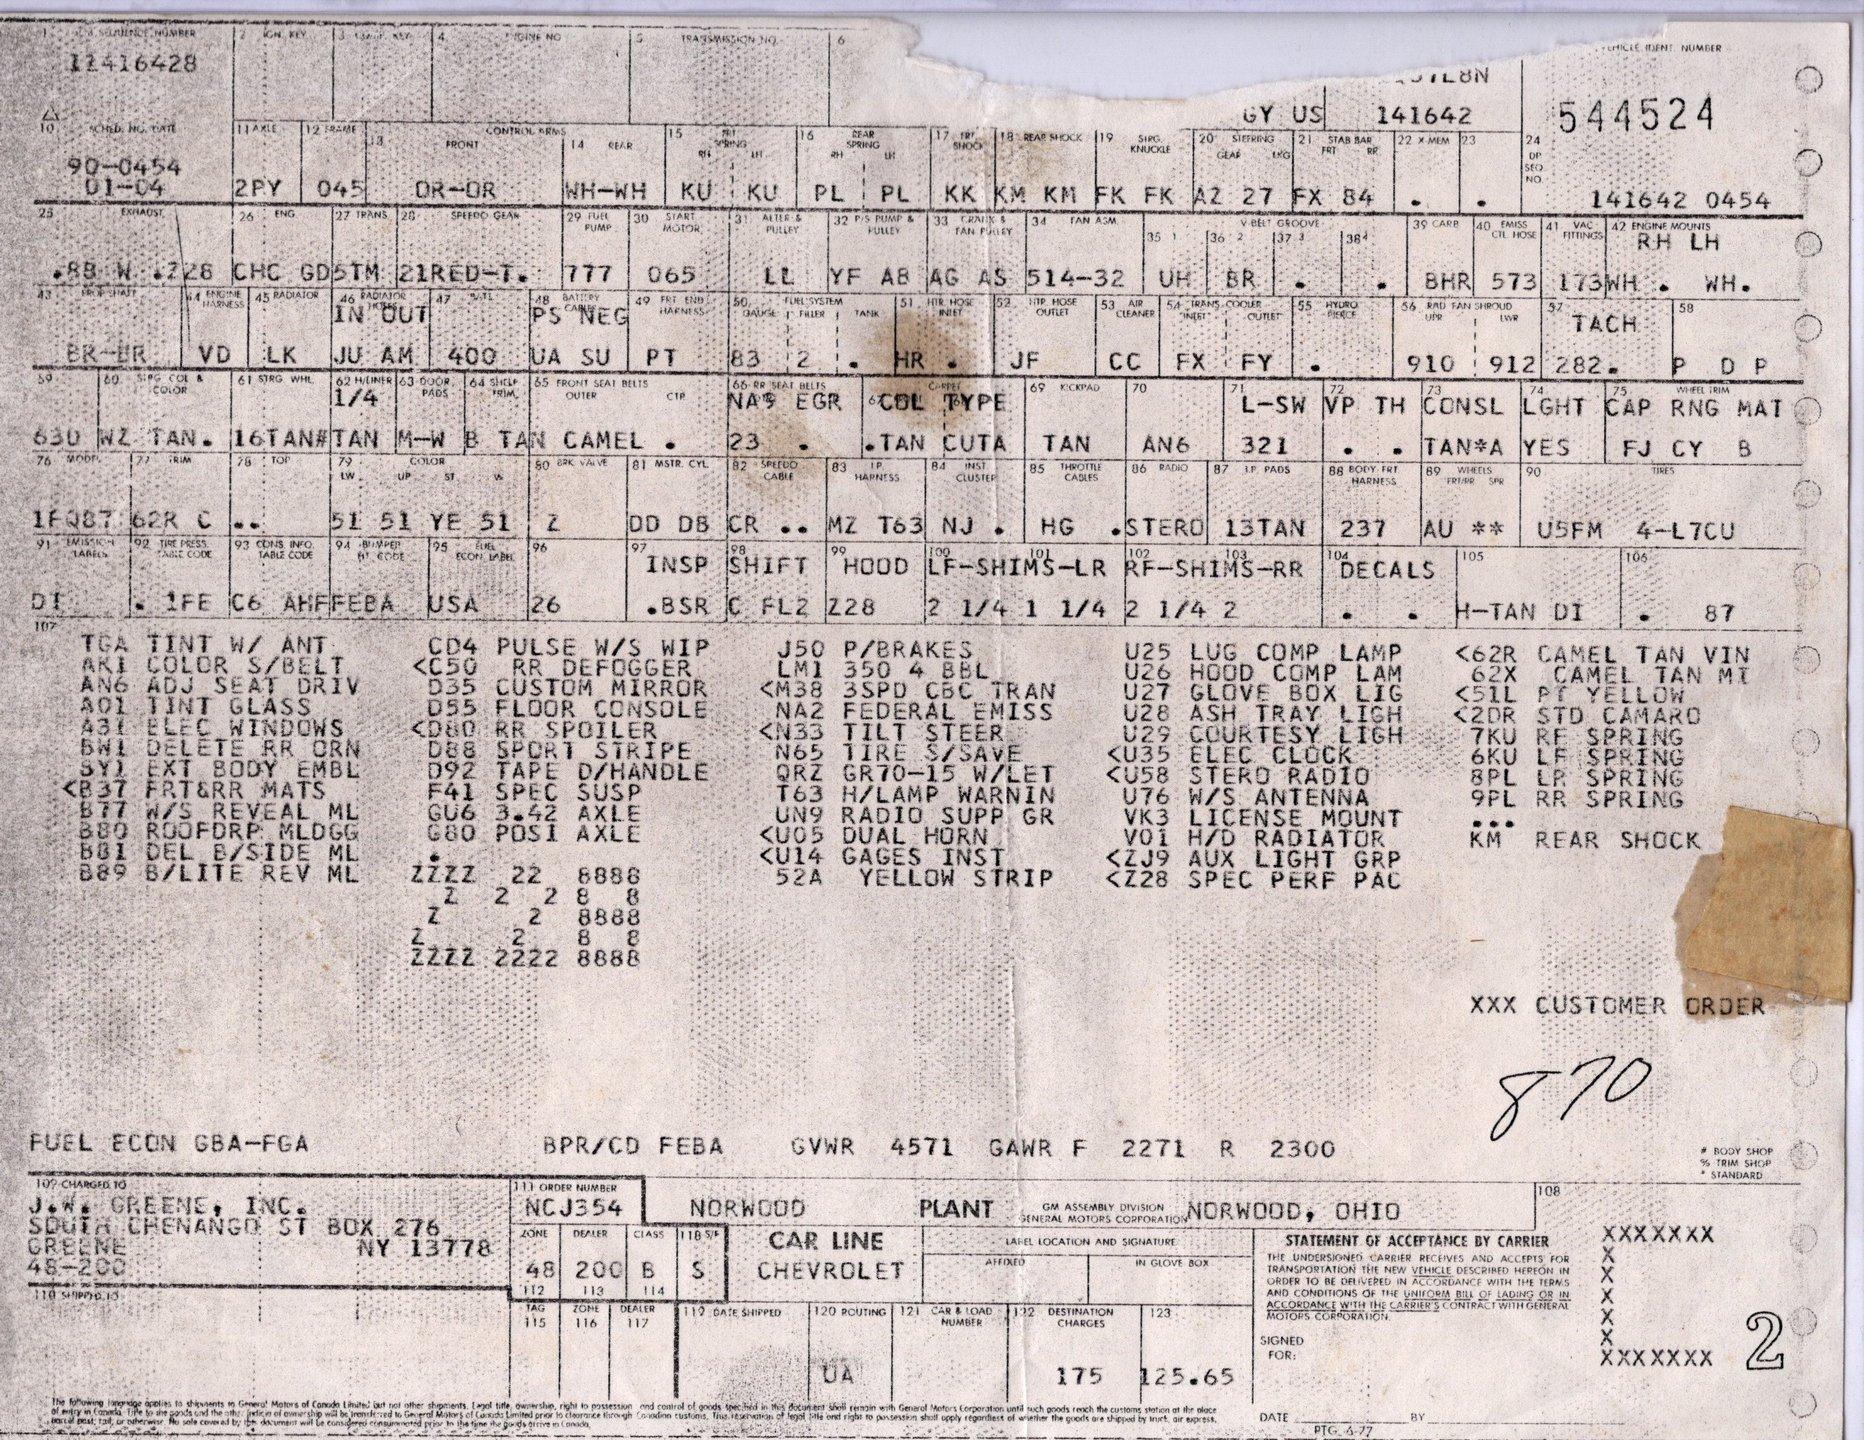 JOB SEQUENCE NUMBER 2 IGN. KEY 4 ENGINE NO 5 TRANSMISSION NO. 6 VEHICLE IDENT. NUMBER
11416428
GY US 141642 544524
10 SCHED. NO. DATE 11 AXLE 12 FRAME 13 CONTROL ARMS FRONT 14 REAR 15 FRT SPRING RH LH 16 REAR SPRING RH LH 17 FRT SHOCK 18 REAR SHOCK 19 STRG. KNUCKLE 20 STEERING GEAR LKG 21 STAB BAR FRT RR 22 X MEM 23 24 DP SEQ NO.
90-0454
01-04 2PY 045 OR-OR WH-WH KU KU PL PL KK KM KM FK FK AZ 27 FX 84 . . 141642 0454
25 EXHAUST 26 ENG 27 TRANS. 28 SPEEDO GEAR 29 FUEL PUMP 30 START MOTOR 31 ALTER & PULLEY 32 P/S PUMP & PULLEY 33 CRANK & FAN PULLEY 34 FAN ASM. V-BELT GROOVE 35 1 36 2 37 3 38 4 39 CARB 40 EMISS CTL HOSE 41 VAC FITTINGS 42 ENGINE MOUNTS
RH LH
.8B W .Z28 CHC GD5TM 21RED-T. 777 065 LL YF AB AG AS 514-32 UH BR . . BHR 573 173WH . WH.
43 PROP SHAFT 44 ENGINE HARNESS 45 RADIATOR 46 RADIATOR HOSES 47 BATT. 48 BATTERY CABLES 49 FRT END HARNESS 50 FUEL SYSTEM GAUGE FILLER TANK 51 HTR. HOSE INLET 52 HTR. HOSE OUTLET 53 AIR CLEANER 54 TRANS-COOLER INLET OUTLET 55 HYDRO PIERCE 56 RAD FAN SHROUD UPR LWR 57 58
IN OUT PS NEG TACH
BR-UR VD LK JU AM 400 UA SU PT 83 2 . HR . JF CC FX FY . 910 912 282. P D P
59 60 STRG COL & COLOR 61 STRG WHL. 62 H/LINER 63 DOOR PADS 64 SHELF TRIM 65 FRONT SEAT BELTS OUTER CTR 66 RR SEAT BELTS CARPET 69 KICKPAD 70 71 72 73 74 75 WHEEL TRIM
1/4 NA9 EGR COL TYPE L-SW VP TH CONSL LGHT CAP RNG MAT
630 WZ TAN. 16TAN#TAN M-W B TAN CAMEL . 23 . .TAN CUTA TAN AN6 321 . . TAN*A YES FJ CY B
76 MODEL 77 TRIM 78 TOP 79 COLOR LW UP ST W 80 BRK VALVE 81 MSTR. CYL. 82 SPEEDO CABLE 83 I.P. HARNESS 84 INST. CLUSTER 85 THROTTLE CABLES 86 RADIO 87 I.P. PADS 88 BODY FRT HARNESS 89 WHEELS FRT/RR SPR 90 TIRES
1FQ87 62R C .. 51 51 YE 51 Z DD DB CR .. MZ T63 NJ . HG .STERO 13TAN 237 AU ** U5FM 4-L7CU
91 EMISSION LABELS 92 TIRE PRESS. TABLE CODE 93 CONS. INFO. TABLE CODE 94 BUMPER HT. CODE 95 FUEL ECON. LABEL 96 97 98 99 100 101 102 103 104 105 106
INSP SHIFT HOOD LF-SHIMS-LR RF-SHIMS-RR DECALS
DI . 1FE C6 AHFFEBA USA 26 .BSR C FL2 Z28 2 1/4 1 1/4 2 1/4 2 . . H-TAN DI . 87
107
TGA TINT W/ ANT CD4 PULSE W/S WIP J50 P/BRAKES U25 LUG COMP LAMP <62R CAMEL TAN VIN
AK1 COLOR S/BELT <C50 RR DEFOGGER LM1 350 4 BBL U26 HOOD COMP LAM 62X CAMEL TAN MI
AN6 ADJ SEAT DRIV D35 CUSTOM MIRROR <M38 3SPD CBC TRAN U27 GLOVE BOX LIG <51L PT YELLOW
A01 TINT GLASS D55 FLOOR CONSOLE NA2 FEDERAL EMISS U28 ASH TRAY LIGH <2DR STD CAMARO
A31 ELEC WINDOWS <D80 RR SPOILER <N33 TILT STEER U29 COURTESY LIGH 7KU RF SPRING
BW1 DELETE RR ORN D88 SPORT STRIPE N65 TIRE S/SAVE <U35 ELEC CLOCK 6KU LF SPRING
BY1 EXT BODY EMBL D92 TAPE D/HANDLE QRZ GR70-15 W/LET <U58 STERO RADIO 8PL LR SPRING
<B37 FRT&RR MATS F41 SPEC SUSP T63 H/LAMP WARNIN U76 W/S ANTENNA 9PL RR SPRING
B77 W/S REVEAL ML GU6 3.42 AXLE UN9 RADIO SUPP GR VK3 LICENSE MOUNT ...
B80 ROOFDRP MLDGG G80 POSI AXLE <U05 DUAL HORN V01 H/D RADIATOR KM REAR SHOCK
B81 DEL B/SIDE ML . <U14 GAGES INST <ZJ9 AUX LIGHT GRP
B89 B/LITE REV ML ZZZZ 22 8888 52A YELLOW STRIP <Z28 SPEC PERF PAC
Z 2 2 8 8
Z 2 8888
Z 2 8 8
ZZZZ 2222 8888
XXX CUSTOMER ORDER
870
FUEL ECON GBA-FGA BPR/CD FEBA GVWR 4571 GAWR F 2271 R 2300
# BODY SHOP
% TRIM SHOP
* STANDARD
109 CHARGED TO 111 ORDER NUMBER 108
J.W. GREENE, INC. NCJ354 NORWOOD PLANT GM ASSEMBLY DIVISION GENERAL MOTORS CORPORATION NORWOOD, OHIO
SOUTH CHENANGO ST BOX 276
GREENE NY 13778
48-200
ZONE DEALER CLASS 118 S/F CAR LINE LABEL LOCATION AND SIGNATURE
48 200 B S CHEVROLET AFFIXED IN GLOVE BOX
112 113 114
110 SHIPPED TO
TAG ZONE DEALER 119 DATE SHIPPED 120 ROUTING 121 CAR & LOAD NUMBER 122 DESTINATION CHARGES 123
115 116 117
UA 175 125.65
STATEMENT OF ACCEPTANCE BY CARRIER
THE UNDERSIGNED CARRIER RECEIVES AND ACCEPTS FOR
TRANSPORTATION THE NEW VEHICLE DESCRIBED HEREON IN
ORDER TO BE DELIVERED IN ACCORDANCE WITH THE TERMS
AND CONDITIONS OF THE UNIFORM BILL OF LADING OR IN
ACCORDANCE WITH THE CARRIER'S CONTRACT WITH GENERAL
MOTORS CORPORATION.
SIGNED
FOR:
XXXXXXX
X
X
X
X
X
XXXXXXX
2
The following language applies to shipments to General Motors of Canada Limited but not other shipments. Legal title, ownership, right to possession and control of goods specified in this document shall remain with General Motors Corporation until such goods reach the customs station at the place
of entry in Canada. Title to the goods and the other indicia of ownership will be transferred to General Motors of Canada Limited prior to clearance through Canadian customs. This reservation of legal title and right to possession shall apply regardless of whether the goods are shipped by truck, air express,
parcel post, rail, or otherwise. No sale covered by this document will be considered consummated prior to the time the goods arrive in Canada.
DATE BY
PTG. 6-77